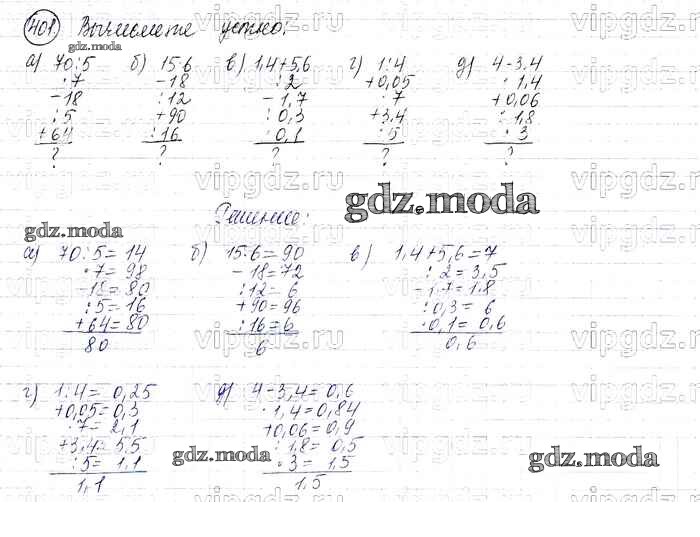 401. Вычислите устно:
gdz.moda
а) 70:5 б) 15·6 в) 1,4+5,6 г) 1:4 д) 4-3,4
·7 -18 :2 +0,05 ·1,4
-18 :12 -1,7 ·7 +0,06
:5 +90 :0,3 +3,4 :1,8
+64 :16 ·0,1 :5 ·3
? ? ? ? ?
gdz.moda
Решение:
gdz.moda
а) 70:5=14 б) 15·6=90 в) 1,4+5,6=7
·7=98 -18=72 :2=3,5
-18=80 :12=6 -1,7=1,8
:5=16 +90=96 :0,3=6
+64=80 :16=6 ·0,1=0,6
80 6 0,6
г) 1:4=0,25 д) 4-3,4=0,6
+0,05=0,3 ·1,4=0,84
·7=2,1 +0,06=0,9
+3,4=5,5 :1,8=0,5
:5=1,1 ·3=1,5
1,1 1,5
gdz.moda
gdz.moda
vipgdz.ru